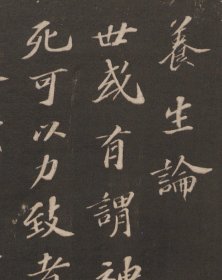 養生論
世或有謂神
死可以力致者